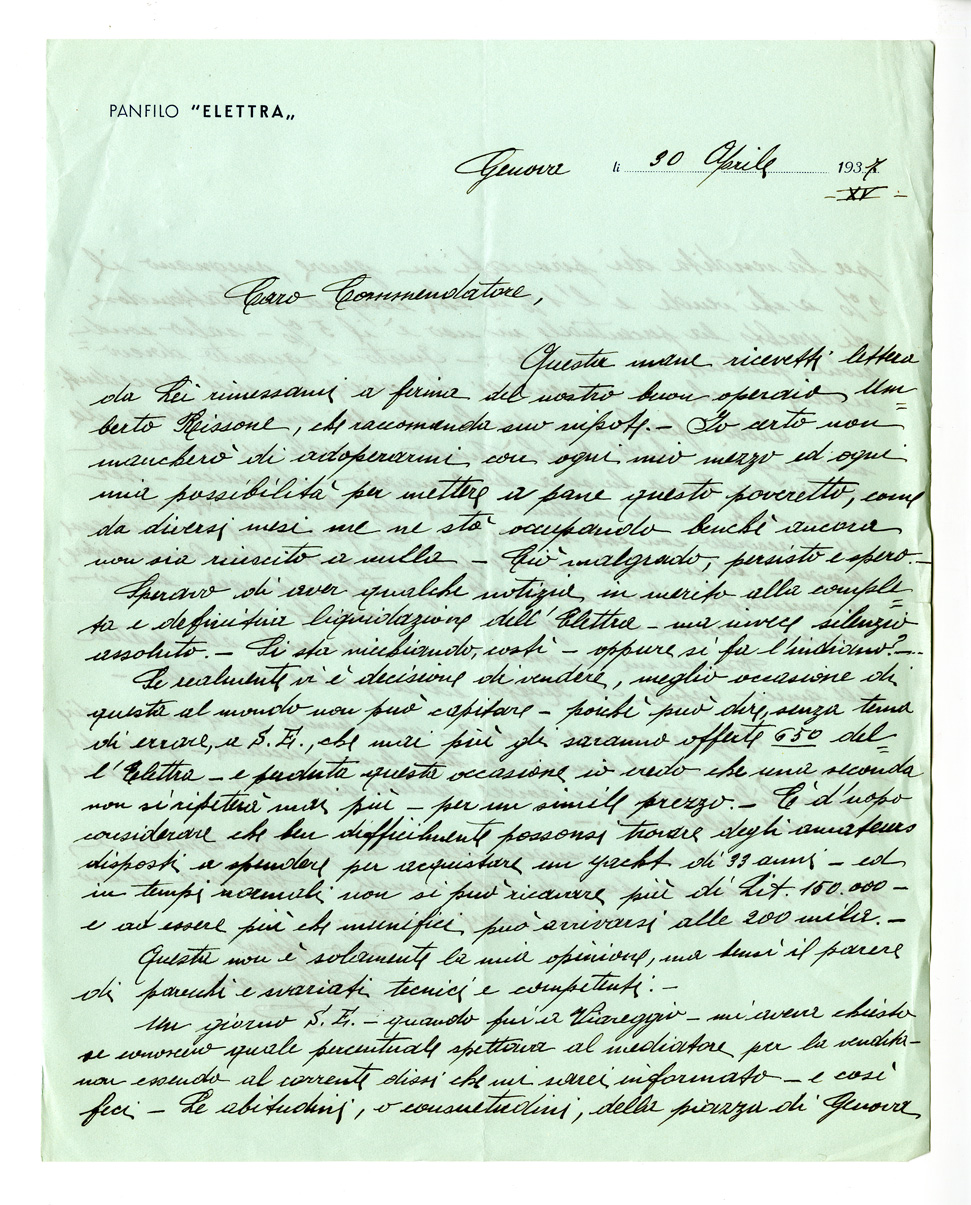 PANFILO "ELETTRA„
Genova li 30 Aprile 1937
- XV -
Caro Commendatore,
Questa mane ricevetti lettera
da Lei rimessami a firma del nostro buon operaio Um=
berto Rissone, che raccomanda suo nipote. - Io certo non
mancherò di adoperarmi con ogni mio mezzo ed ogni
mia possibilità per mettere a pane questo poveretto, come
da diversi mesi me ne stò occupando benchè ancora
non sia riuscito a nulla - Ciò malgrado, persisto e spero. -
Speravo di aver qualche notizia in merito alla comple=
ta e definitiva liquidazione dell'Elettra - ma invece silenzio
assoluto. - Si sta nicchiando, costì - oppure si fa l'indiano? -..
Se realmente vi è decisione di vendere, meglio occasione di
questa al mondo non può capitare - poichè può dire, senza tema
di errare, a S.E., che mai più gli saranno offerte 650 del=
l'Elettra - e perduta questa occasione io credo che una seconda
non si ripeterà mai più - per un simile prezzo. - È d'uopo
considerare che ben difficilmente possonsi trovare degli amateurs
disposti a spendere per acquistare un yacht di 33 anni - ed
in tempi normali non si può ricavare più di Lit. 150.000 -
e ad essere più che munifici può arrivarsi alle 200 mila. -
Questa non è solamente la mia opinione, ma bensì il parere
di parecchi e svariati tecnici e competenti. -
Un giorno S.E. - quando fui a Viareggio - mi aveva chiesto
se conoscevo quale percentuale spettava al mediatore per la vendita -
non essendo al corrente dissi che mi sarei informato - e così
feci - Le abitudini, o consuetudini, della piazza di Genova